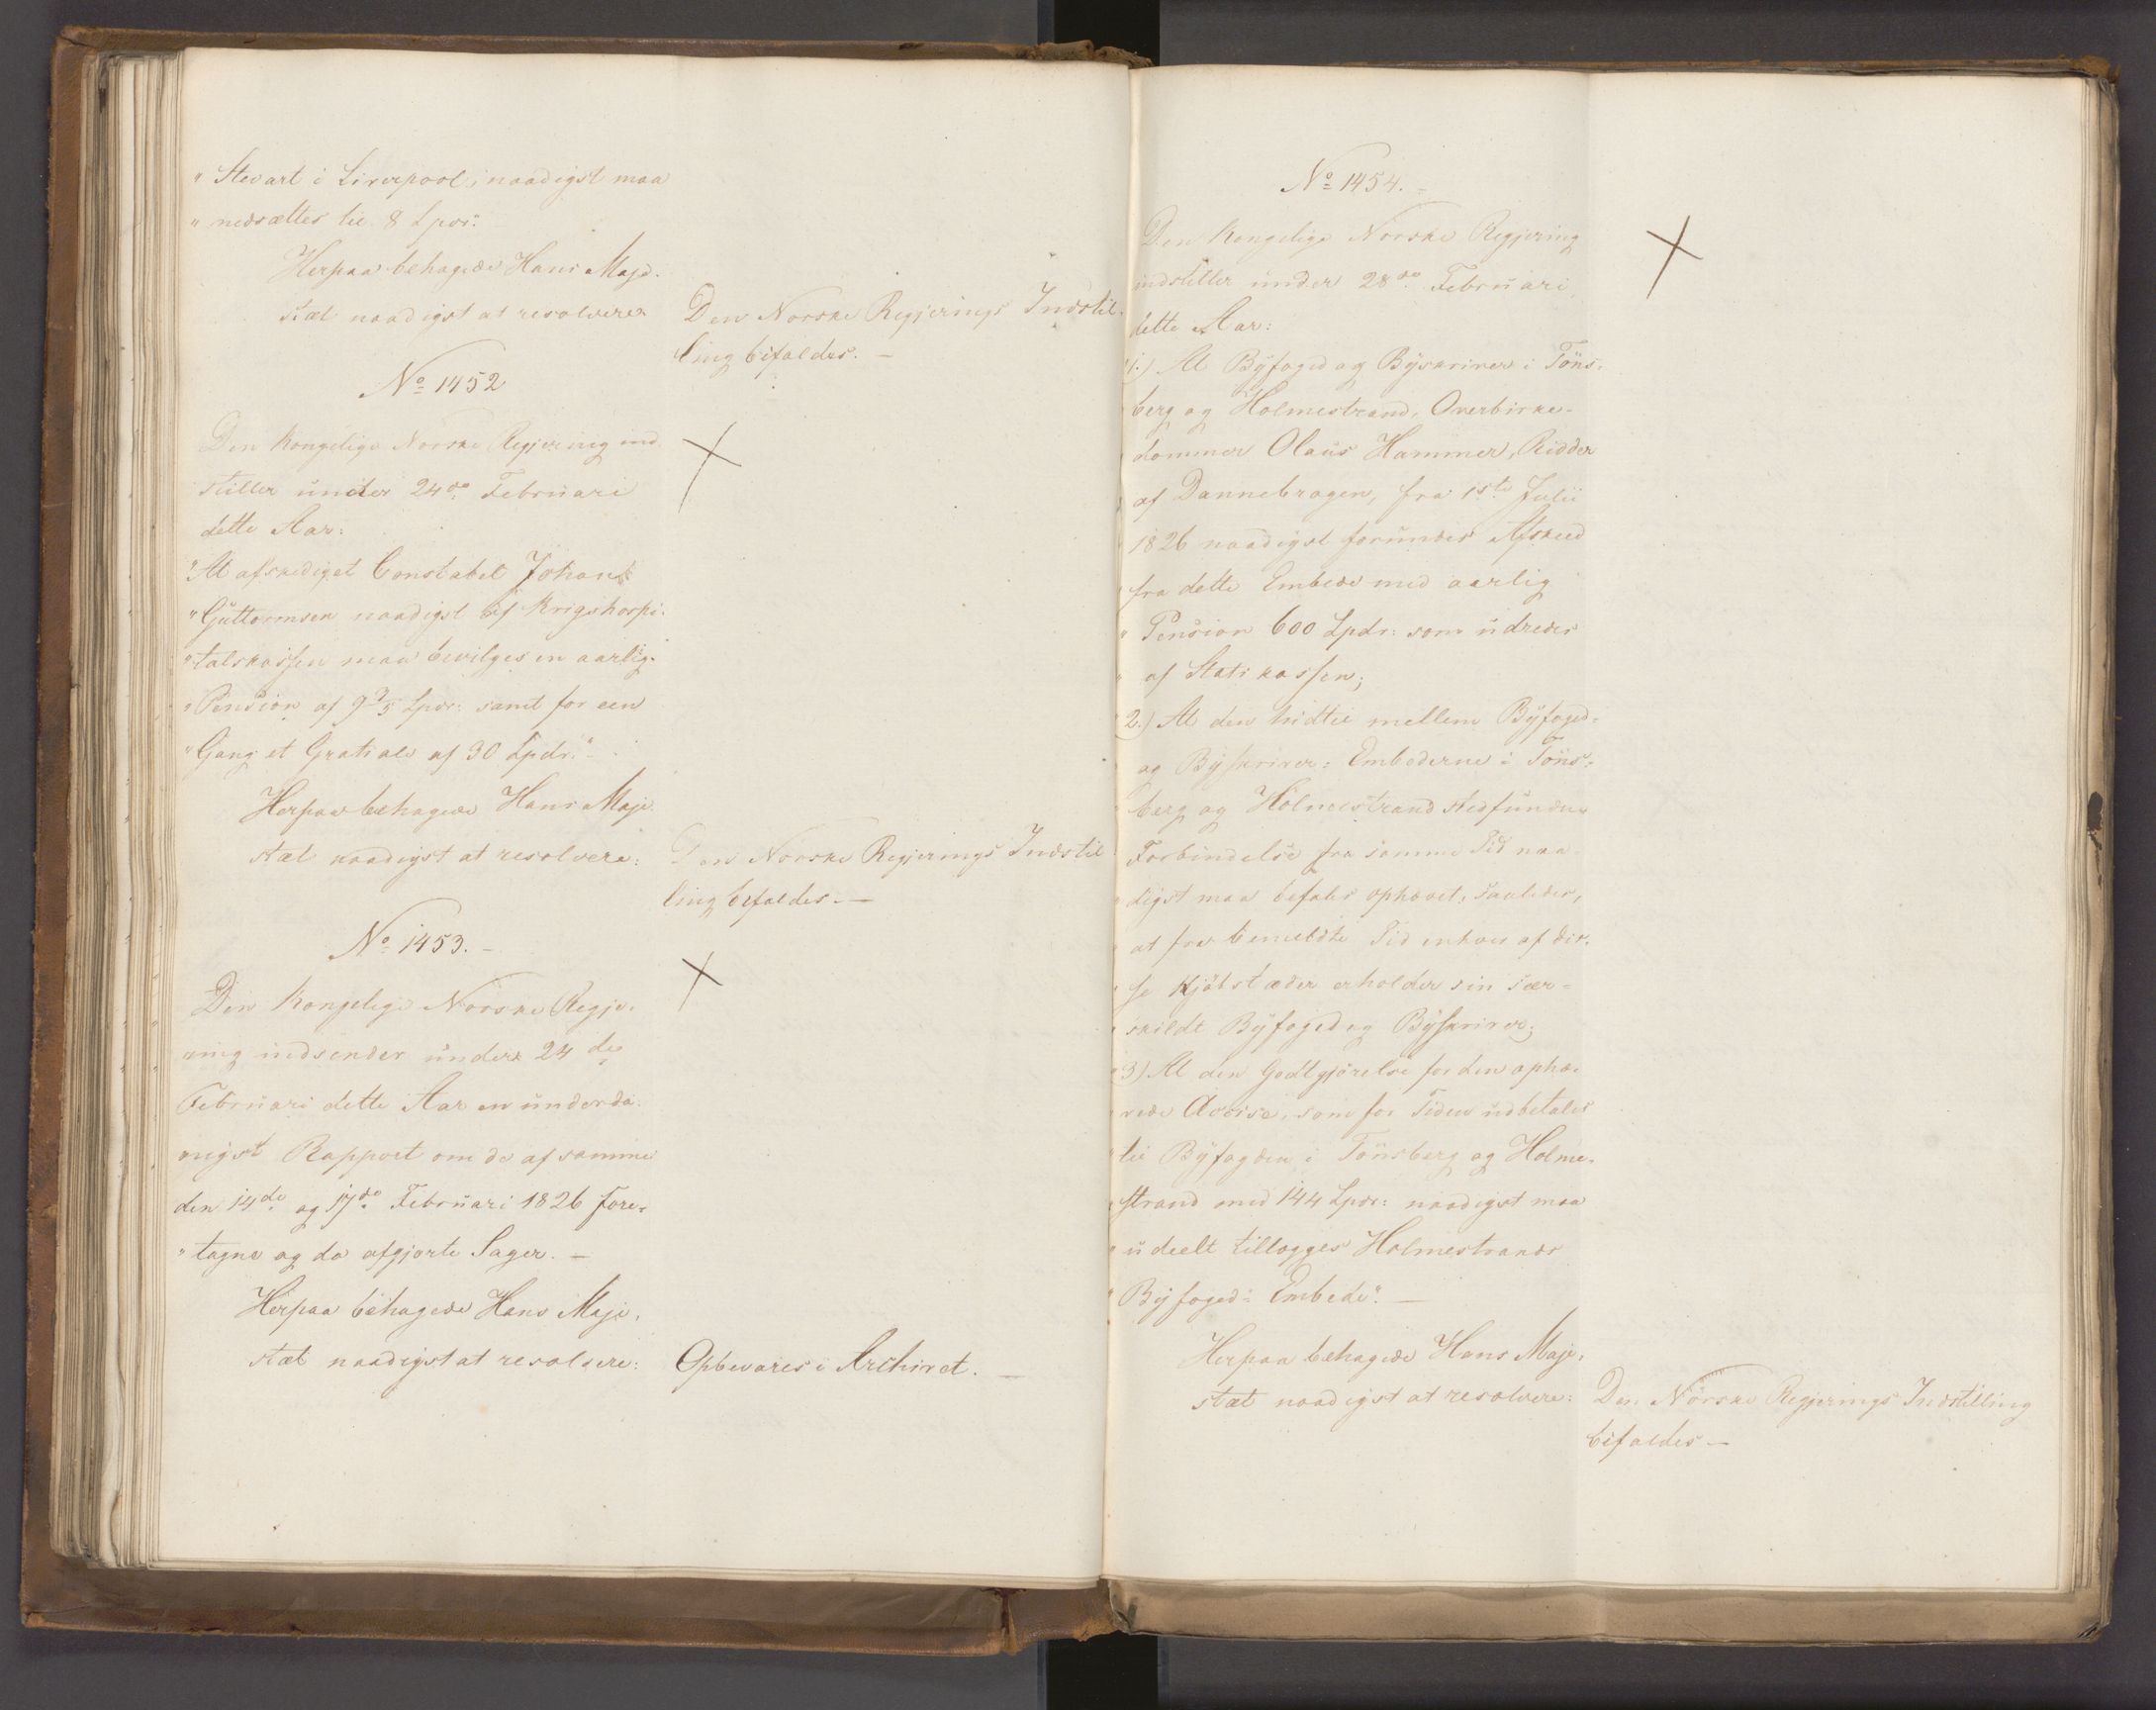 " Stevart i Liverpool, naadigst maa
" nedsættes til 8 Spdr:
Herpaa behagede Hans Maje-
stæt naadigst at resolvere:
Den Norske Regjerings Indstil-
ling bifaldes. —
No 1452
Den Kongelige Norske Regjering ind
stiller under 24de Februari
dette Aar:
"At afskediget Constabel Johans
"Guttormsen naadigst af Krigshospi-
"talskassen maa bevilges en aarlig
"Pension af 9 3/5 Spdr: samt for een
"Gang et Gratiale af 30 Spdr:"
Herpaa behagede Hans Maje
stæt naadigst at resolvere:
Den Norske Regjerings Indstil
ling bifaldes. —
No 1453. —
Den Kongelige Norske Regje-
ring indsender under 24de
Februari dette Aar en underda-
nigst Rapport om de af samme
den 14de og 17de Februari 1826 fore-
"tagne og da afgjorte Sager. —
Herpaa behagede Hans Maje-
stæt naadigst at resolvere:
Opbevares i Archivet. —
No 1454. —
Den Kongelige Norske Regjering
indstiller under 28de Februari
dette Aar:
"1.) At Byfoged og Byskriver i Töns-
berg og Holmestrand, Overbirke-
dommer Olaus Hammer, Ridder
af Dannebrogen, fra 1ste Julii
"1826 naadigst forundes Afskeed
" fra dette Embede med aarlig
" Pension 600 Spdr: som udredes
" af Statskassen;
"2.) At den hidtil mellem Byfoged-
og Byskriver-Embederne i Töns-
berg og Holmestrand stedfundne
Forbindelse fra samme Tid naa-
" digst maa befales ophævet, saaledes,
" at fra bemeldte Tid enhver af dis-
" se Kjöbstæder erholder sin sær-
" skildt Byfoged og Byskriver;
"3) At den Godtgjörelse for den ophæ-
" vede Accise, som for Tiden udbetales
" til Byfogden i Tönsberg og Holme-
" strand med 144 Spdr: naadigst maa
" udeelt tillægges Holmestrands
" Byfoged-Embede". —
Herpaa behagede Hans Maje-
stæt naadigst at resolvere:
Den Norske Regjerings Indstilling
bifaldes —